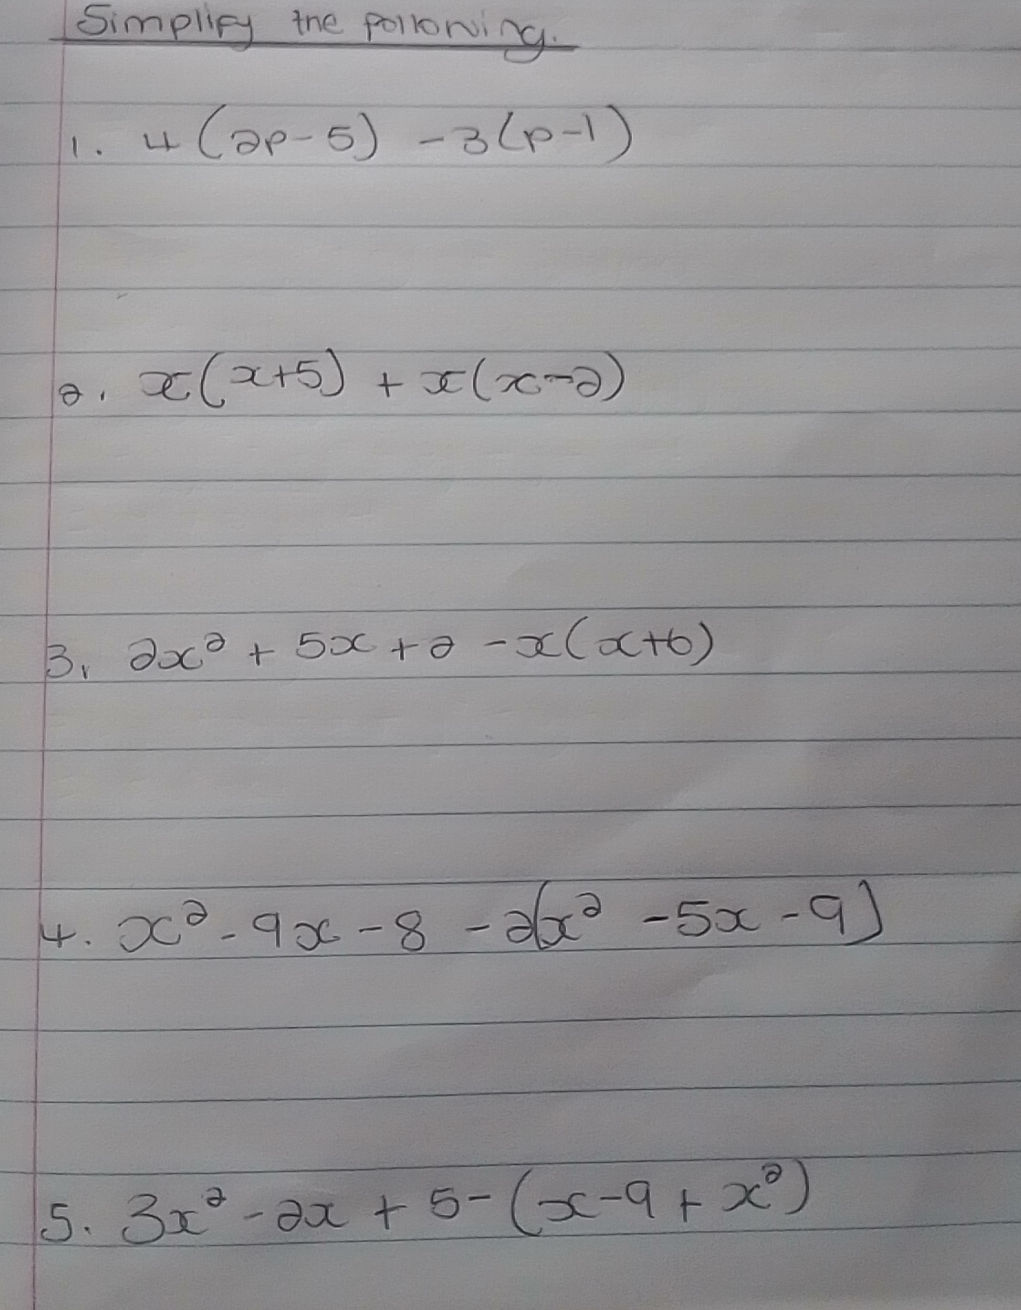 Simplify the following.
1. 4(2p-5) -3(p-1)
2. x(x+5) + x(x-2)
3. 2x² + 5x +2 -x(x+6)
4. x² - 9x - 8 - 2(x² - 5x - 9)
5. 3x² - 2x + 5 - (x-9 + x²)